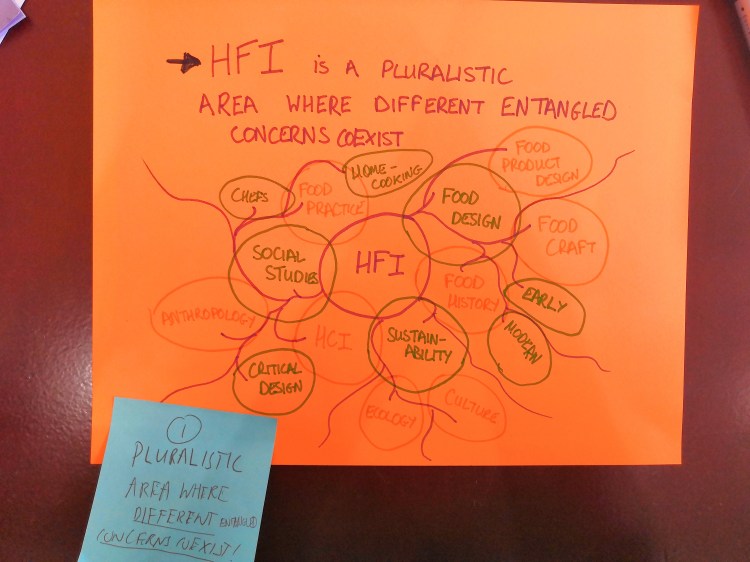 → HFI IS A PLURALISTIC
AREA WHERE DIFFERENT ENTANGLED
CONCERNS COEXIST
HOME-
COOKING
FOOD
PRODUCT
DESIGN
CHEFS
FOOD
PRACTICE
FOOD
DESIGN
FOOD
CRAFT
SOCIAL
STUDIES
HFI
FOOD
HISTORY
EARLY
ANTHROPOLOGY
HCI
SUSTAIN-
ABILITY
MODERN
CRITICAL
DESIGN
ECOLOGY
CULTURE
1
PLURALISTIC
AREA WHERE
DIFFERENT ENTANGLED
CONCERNS COEXIST!